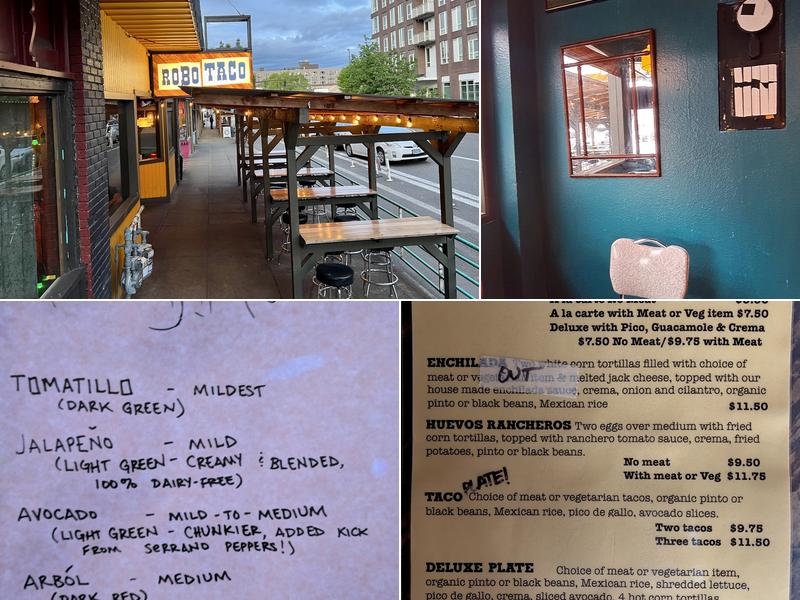 ROBO TACO
TOMATILLO - MILDEST
(DARK GREEN)
JALAPEÑO - MILD
(LIGHT GREEN - CREAMY & BLENDED,
100% DAIRY-FREE)
AVOCADO - MILD-TO-MEDIUM
(LIGHT GREEN - CHUNKIER, ADDED KICK
FROM SERRANO PEPPERS!)
ARBÓL - MEDIUM
(DARK RED)
A la carte No Meat
A la carte with Meat or Veg item $7.50
Deluxe with Pico, Guacamole & Crema
$7.50 No Meat/$9.75 with Meat
ENCHILADA Two white corn tortillas filled with choice of
OUT
meat or item & melted jack cheese, topped with our
house made enchilada sauce, crema, onion and cilantro, organic
pinto or black beans, Mexican rice $11.50
HUEVOS RANCHEROS Two eggs over medium with fried
corn tortillas, topped with ranchero tomato sauce, crema, fried
potatoes, pinto or black beans.
No meat $9.50
With meat or Veg $11.75
PLATE!
TACO Choice of meat or vegetarian tacos, organic pinto or
black beans, Mexican rice, pico de gallo, avocado slices.
Two tacos $9.75
Three tacos $11.50
DELUXE PLATE Choice of meat or vegetarian item,
organic pinto or black beans, Mexican rice, shredded lettuce,
pico de gallo, crema, sliced avocado, 4 hot corn tortillas